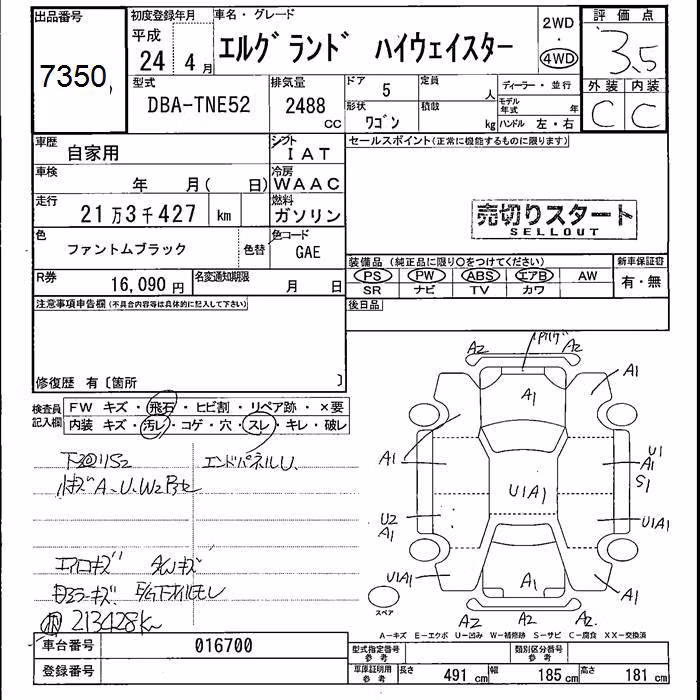 出品番号
7350
初度登録年月
平成
24 4月
車名・グレード
エルグランド ハイウェイスター
2WD
・
4WD
評価点
3.5
外装 内装
C C
型式
DBA-TNE52
排気量
2488
cc
ドア
5
定員
人
形状
ワゴン
積載
kg
ディーラー・並行
モデル年式
年
ハンドル 左・右
車歴
自家用
シフト
IAT
車検
年 月( 日)
冷房
WAAC
走行
21万3千427 km
燃料
ガソリン
色
ファントムブラック
色替
色コード
GAE
R券
16,090 円
名変通知期限
月 日
セールスポイント(正常に機能するものに限ります)
売切りスタート
SELLOUT
装備品(純正品に限り○をつけてください)
PS PW ABS エアB AW
SR ナビ TV カワ
新車保証書
有・無
後日品
注意事項申告欄(不具合内容等は具体的に記入して下さい)
修復歴 有〔箇所 〕
検査員記入欄
FW キズ・飛石・ヒビ割・リペア跡・×要
内装 キズ・汚レ・コゲ・穴・スレ・キレ・破レ
エンドパネルU.
A、U、W2
エアロキズ
213428K
A2 A2
A1
A1
A1
U1
A1
S1
U1A1
U2
A1
U1A1
U1A1
A1
A1
スペア
A2 A2 A2.
A-キズ E-エクボ U-凹み W-補修跡 S-サビ C-腐食 XX-交換済
車台番号
016700
登録番号
型式指定番号
参考
類別区分番号
参考
車庫証明用
参考
長さ 491 cm 幅 185 cm 高さ 181 cm